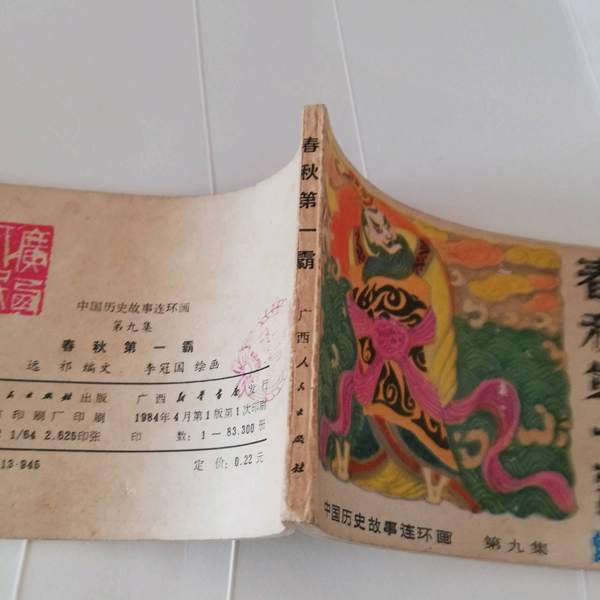 中国历史故事连环画
第九集
春秋第一霸
远祁编文 李冠国绘画
出版社出版 广西新华书店发行
印刷厂印刷 1984年4月第1版第1次印刷
1/64 2.625印张 印数:1—83,300册
13·945 定价:0.22元
春秋第一霸
广西人民出版社
春秋第一
中国历史故事连环画 第九集